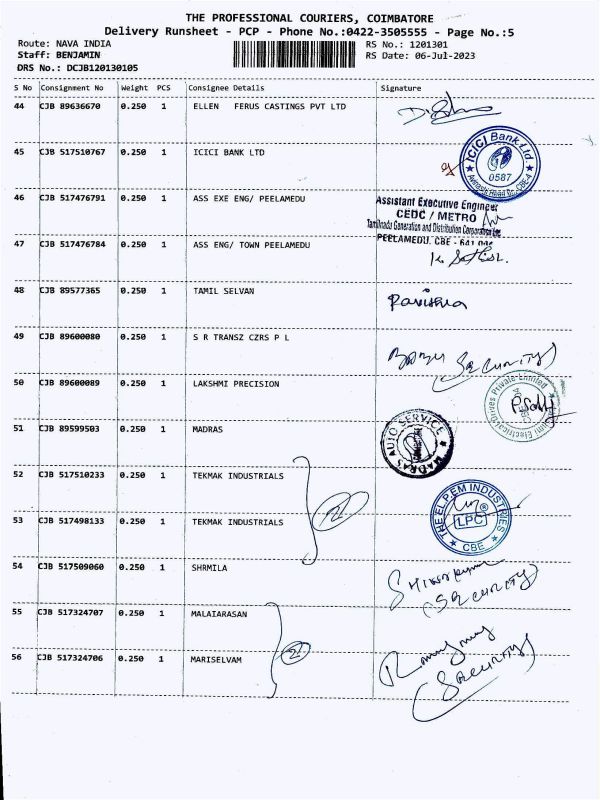 THE PROFESSIONAL COURIERS, COIMBATORE
Delivery Runsheet - PCP - Phone No.:0422-3505555 - Page No.:5
Route: NAVA INDIA RS No.: 1201301
Staff: BENJAMIN RS Date: 06-Jul-2023
DRS No.: DCJB120130105
S No Consignment No Weight PCS Consignee Details Signature
44 CJB 89636670 0.250 1 ELLEN FERUS CASTINGS PVT LTD
45 CJB 517510767 0.250 1 ICICI BANK LTD
ICICI Bank Ltd
0587
46 CJB 517476791 0.250 1 ASS EXE ENG/ PEELAMEDU
Assistant Executive Engineer
CEDC / METRO
Tamilnadu Generation and Distribution Corporation Ltd
PEELAMEDU, CBE - 641 004
47 CJB 517476784 0.250 1 ASS ENG/ TOWN PEELAMEDU
K. Sathish.
48 CJB 89577365 0.250 1 TAMIL SELVAN
49 CJB 89600080 0.250 1 S R TRANSZ CZRS P L
(SECURITY)
50 CJB 89600089 0.250 1 LAKSHMI PRECISION
51 CJB 89599503 0.250 1 MADRAS
MADRAS AUTO SERVICE
52 CJB 517510233 0.250 1 TEKMAK INDUSTRIALS
2
53 CJB 517498133 0.250 1 TEKMAK INDUSTRIALS
THE ELPEM INDUSTRIES
LPC
CBE
54 CJB 517509060 0.250 1 SHRMILA
(SECURITY)
55 CJB 517324707 0.250 1 MALAIARASAN
2
56 CJB 517324706 0.250 1 MARISELVAM
(SECURITY)